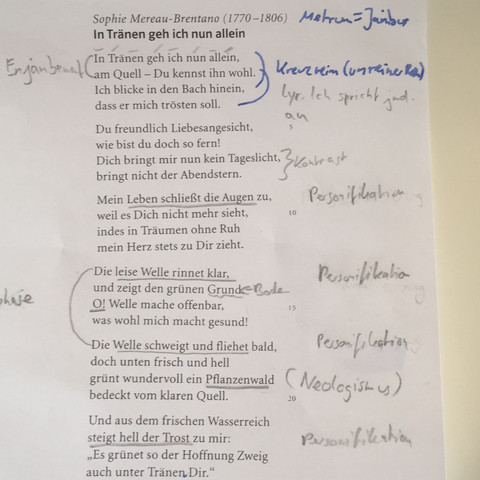 Sophie Mereau-Brentano (1770–1806) Metrum = Jambus
In Tränen geh ich nun allein
In Tränen geh ich nun allein,
Enjambement am Quell – Du kennst ihn wohl. Kreuzreim (unreiner Reim)
Ich blicke in den Bach hinein, Lyr. Ich spricht jmd.
dass er mich trösten soll. an
Du freundlich Liebesangesicht, 5
wie bist du doch so fern!
Dich bringt mir nun kein Tageslicht, Kontrast
bringt nicht der Abendstern.
Mein Leben schließt die Augen zu, Personifikation
weil es Dich nicht mehr sieht, 10
indes in Träumen ohne Ruh
mein Herz stets zu Dir zieht.
Die leise Welle rinnet klar, Personifikation
und zeigt den grünen Grund = Boden
O! Welle mache offenbar, 15
was wohl mich macht gesund!
Die Welle schweigt und fliehet bald, Personifikation
doch unten frisch und hell
grünt wundervoll ein Pflanzenwald (Neologismus)
bedeckt vom klaren Quell. 20
Und aus dem frischen Wasserreich
steigt hell der Trost zu mir: Personifikation
„Es grünet so der Hoffnung Zweig
auch unter Tränen Dir.“